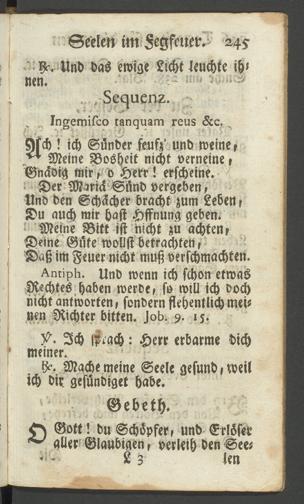 Seelen im Fegfeuer. 245
℟. Und das ewige Licht leuchte ih⸗
nen.
Sequenz.
Ingemiſco tanquam reus &c.
Ach! ich Sünder ſeufz' und weine,
Meine Bosheit nicht verneine,
Gnädig mir, o Herr! erſcheine.
Der Mariä Sünd vergeben,
Und den Schächer bracht zum Leben,
Du auch mir haſt Hffnung geben.
Meine Bitt iſt nicht zu achten,
Deine Güte wollſt betrachten,
Daß im Feuer nicht muß verſchmachten.
Antiph. Und wenn ich ſchon etwas
Rechtes haben werde, ſo will ich doch
nicht antworten, ſondern flehentlich mei⸗
nen Richter bitten. Job. 9. 15.
℣. Ich ſprach: Herr erbarme dich
meiner.
℟. Mache meine Seele geſund, weil
ich dir geſündiget habe.
Gebeth.
O Gott! du Schöpfer, und Erlöſer
aller Glaubigen, verleih den See⸗
L 3 len